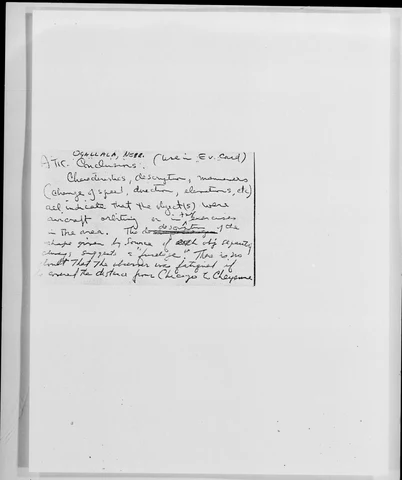 OGALLALA, NEBR. (Use in Ev. Card)
ATIC Conclusions:
Characteristics, description, maneuvers
(change of speed, direction, elevations, etc)
all indicate that the object(s) were
aircraft orbiting or in exercises
in the area. The description of the
shape given by Source of each obj separately
always suggests a "fuselage." There is no
doubt that the observer was fatigued if
covered the distance from Chicago to Cheyenne